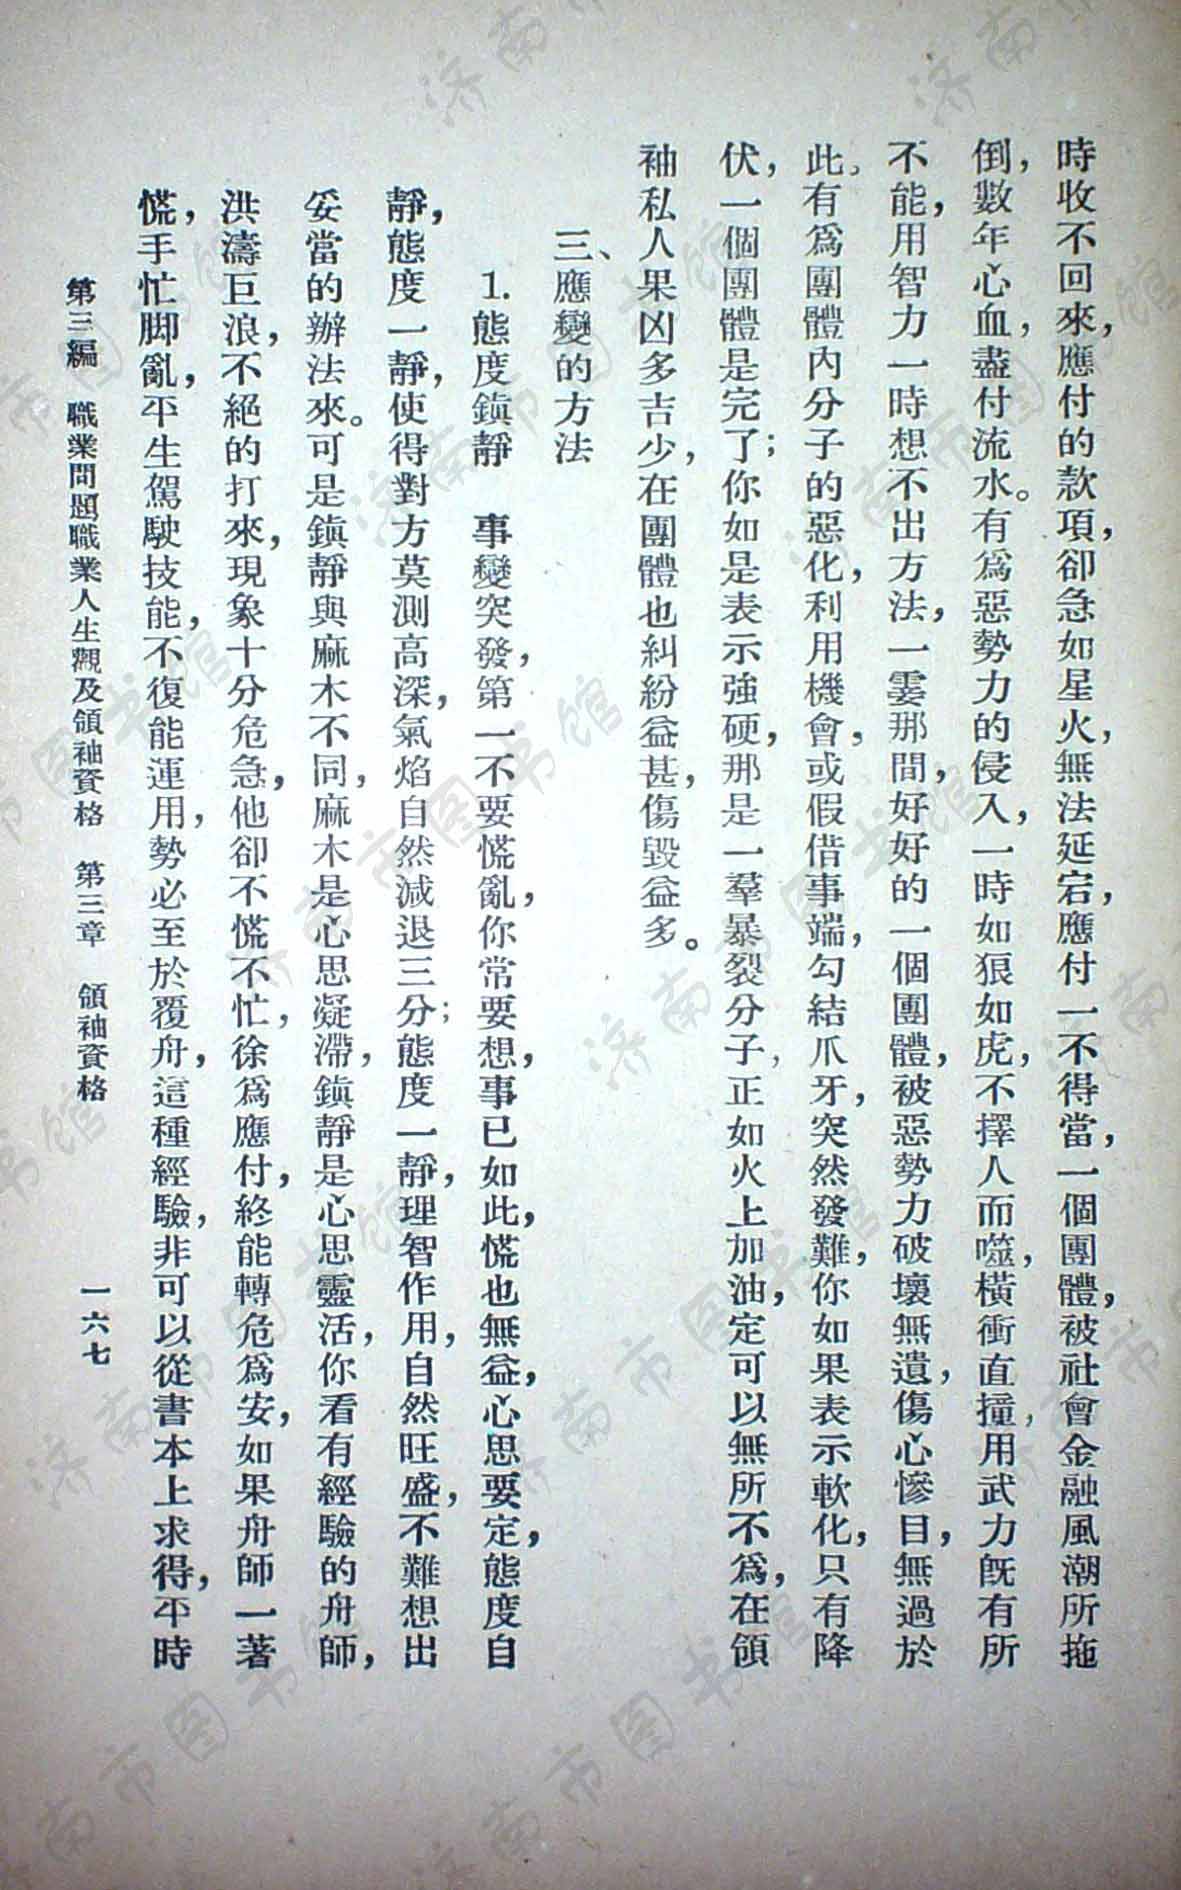 時收不回來，應付的款項，卻急如星火，無法延宕，應付一不得當，一個團體，被社會金融風潮所拖
倒，數年心血，盡付流水。有爲惡勢力的侵入，一時如狼如虎，不擇人而噬，橫衝直撞，用武力旣有所
不能，用智力一時想不出方法，一霎那間，好好的一個團體，被惡勢力破壞無遺，傷心慘目，無過於
此。有爲團體內分子的惡化，利用機會，或假借事端，勾結爪牙，突然發難，你如果表示軟化，只有降
伏，一個團體是完了；你如是表示強硬，那是一羣暴裂分子，正如火上加油，定可以無所不爲，在領
袖私人果凶多吉少，在團體也糾紛益甚，傷毀益多。
三、應變的方法
1.態度鎮靜　事變突發，第一不要慌亂，你常要想，事已如此，慌也無益，心思要定，態度自
靜，態度一靜，使得對方莫測高深，氣焰自然減退三分；態度一靜，理智作用，自然旺盛，不難想出
妥當的辦法來。可是鎮靜與麻木不同，麻木是心思凝滯，鎮靜是心思靈活，你看有經驗的舟師，
洪濤巨浪，不絕的打來，現象十分危急，他卻不慌不忙，徐爲應付，終能轉危爲安，如果舟師一著
慌，手忙脚亂，平生駕駛技能，不復能運用，勢必至於覆舟，這種經驗，非可以從書本上求得，平時
第三編　職業問題職業人生觀及領袖資格　第三章　領袖資格　一六七
济南市图书馆